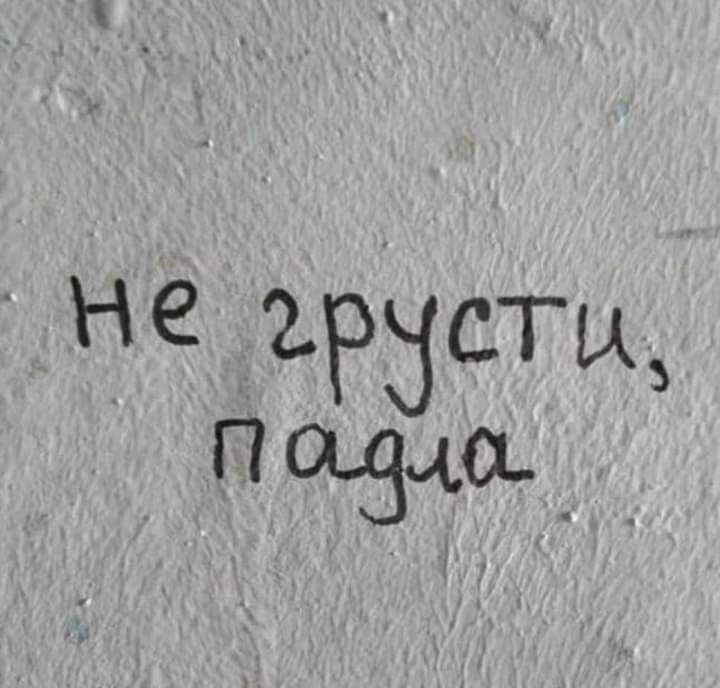 не грусти,
падла